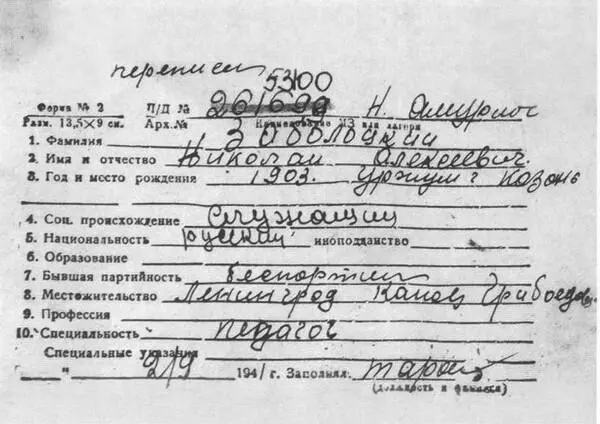 переписи
53100
Форма № 2 П/Д № 261690 Н. Амурлаг
Разм. 13,5×9 см. Арх.№ Наименование ИЗ или лагеря
1. Фамилия Заболоцкий
2. Имя и отчество Николай Алексеевич.
3. Год и место рождения 1903. Уржум г Казань
4. Соц. происхождение Служащий
5. Национальность русский иноподданство
6. Образование
7. Бывшая партийность беспартий
8. Местожительство Ленинград Канав Грибоедов
9. Профессия
10. Специальность педагог
Специальные указания
" 2/9 1941 г. Заполнял
(должность и фамилия)